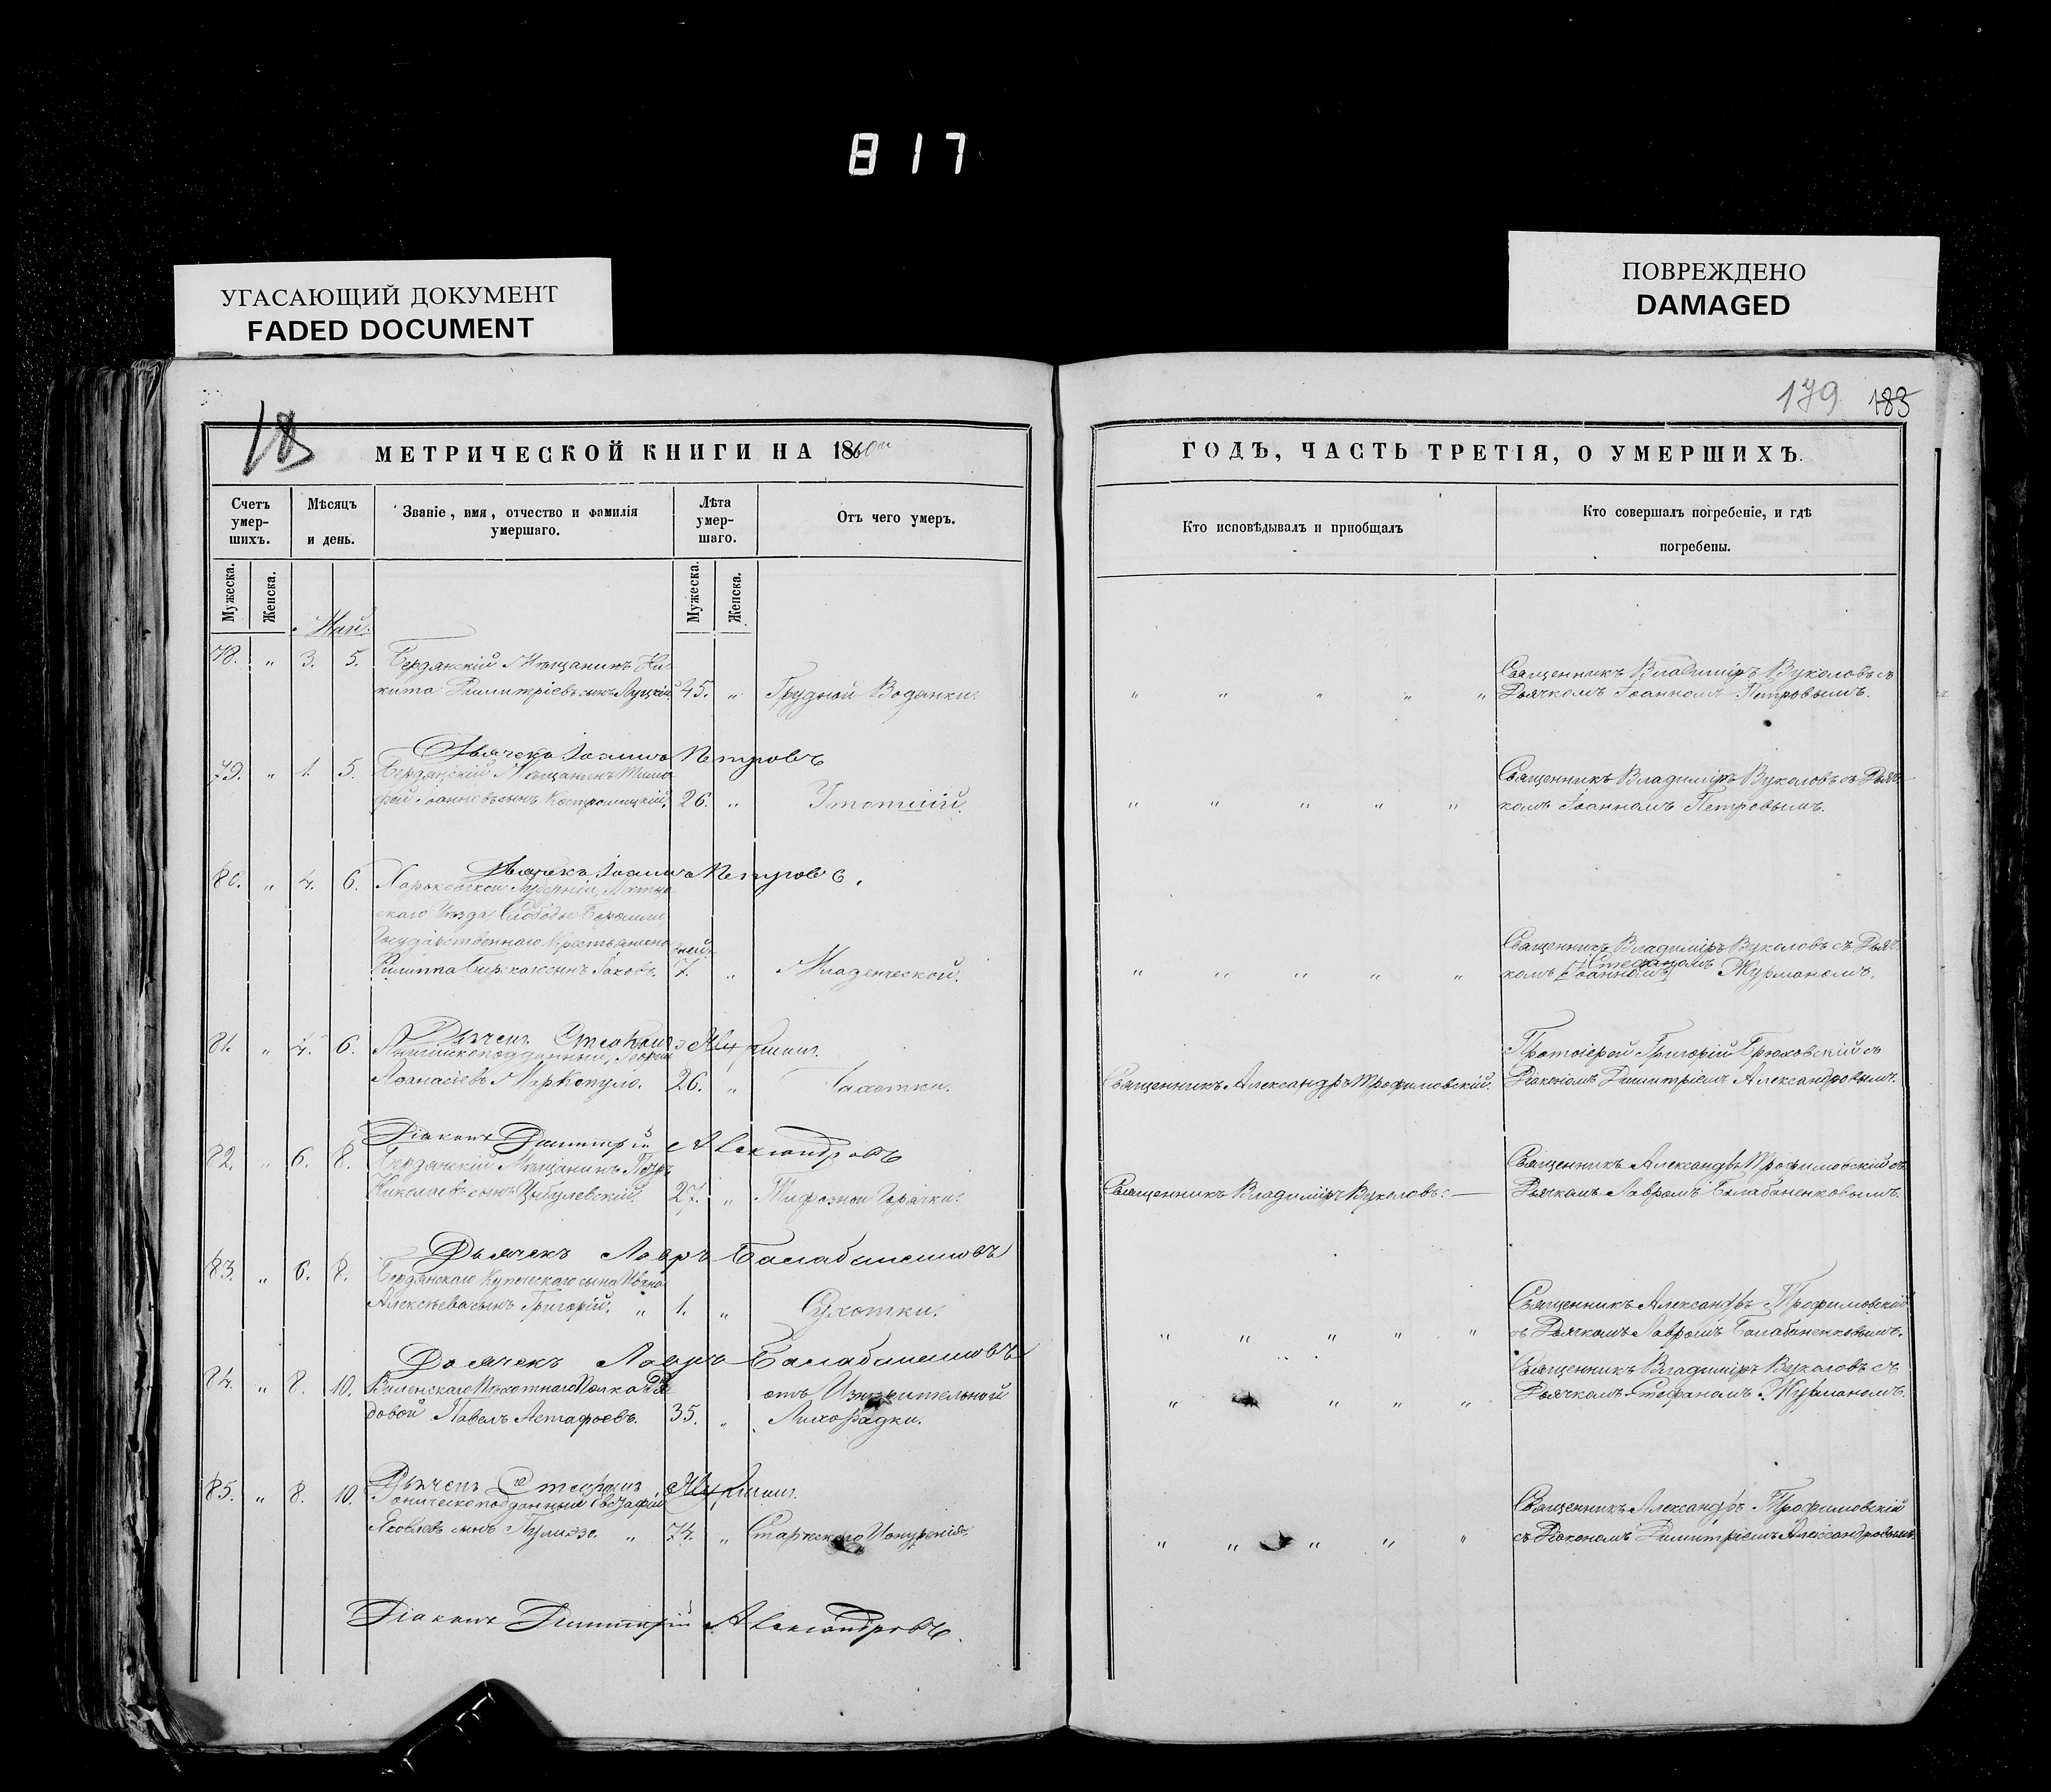 817
УГАСАЮЩИЙ ДОКУМЕНТ
FADED DOCUMENT
ПОВРЕЖДЕНО
DAMAGED
179. 183
МЕТРИЧЕСКОЙ КНИГИ НА 1860й
Счетъ умер-шихъ.
Мѣсяцъ и день.
Званіе, имя, отчество и фамилія умершаго.
Лѣта умер-шаго.
Отъ чего умеръ.
Мужеска. Женска.
Мужеска. Женска.
Май.
78. " 3. 5. Бердянскій Мѣщанинъ Ни-
кита Димитріевъ сынъ Луцкій. 45. " Грудной Водянки.
Дьячекъ Іоаннъ Петровъ
79. " 1. 5. Бердянскій Мѣщанинъ Тимо
фей Іоанновъ сынъ 26. "
Дьячекъ Іоаннъ Петровъ.
80. " 4. 6. Харьковской Губерніи,
скаго Уѣзда, Слободы
Государственнаго Крестьянина дней
Филиппа сынъ Іаковъ. 7. " Младенческой.
Дьячекъ Стефанъ Журманъ.
81. " 4. 6. Георгій
Аѳанасіевъ Маркопуло. 26. " Чахотки.
Діаконъ Димитрій Александровъ
82. " 6. 8. Бердянскій Мѣщанинъ Петръ
Николаевъ сынъ Цыбулевскій. 27. " Тифозной Горячки.
Дьячекъ Лавръ Балабаненковъ
83. " 6. 8. Бердянскаго Купеческаго сына Ивана
Алексѣева сынъ Григорій. " 1. " Сухотки.
Дьячекъ Лавръ Балабаненковъ
84. " 8. 10. Виленскаго Пѣхотнаго Полка Ря
довой Павелъ Астафьевъ. 35. " отъ Изнурительной
Лихорадки.
Дьячекъ Стефанъ Журманъ.
85. " 8. 10.
Яковлевъ сынъ " 74. " Старческаго Изнуренія.
Діаконъ Димитрій Александровъ.
ГОДЪ, ЧАСТЬ ТРЕТІЯ, О УМЕРШИХЪ.
Кто исповѣдывалъ и пріобщалъ
Кто совершалъ погребеніе, и гдѣ погребены.
Священникъ Владиміръ Вуколовъ съ
" " " " " Дьячкомъ Іоанномъ Петровымъ.
Священникъ Владиміръ Вуколовъ съ Дьяч
" " " " " комъ Іоанномъ Петровымъ.
Священникъ Владиміръ Вуколовъ съ Дьяч
Стефаномъ
" " " " " комъ [Іоанномъ] Журманомъ.
Протоіерей Григорій Брюховскій съ
Священникъ Александръ Трофимовскій. Діакономъ Димитріемъ Александровымъ.
Священникъ Александръ Трофимовскій съ
Священникъ Владиміръ Вуколовъ. — Дьячкомъ Лавромъ Балабаненковымъ.
Священникъ Александръ Трофимовскій
" " " " " съ Дьячкомъ Лавромъ Балабаненковымъ.
Священникъ Владиміръ Вуколовъ съ
" " " " Дьячкомъ Стефаномъ Журманомъ.
Священникъ Александръ Трофимовскій
" " " " " съ Діакономъ Димитріемъ Александровымъ